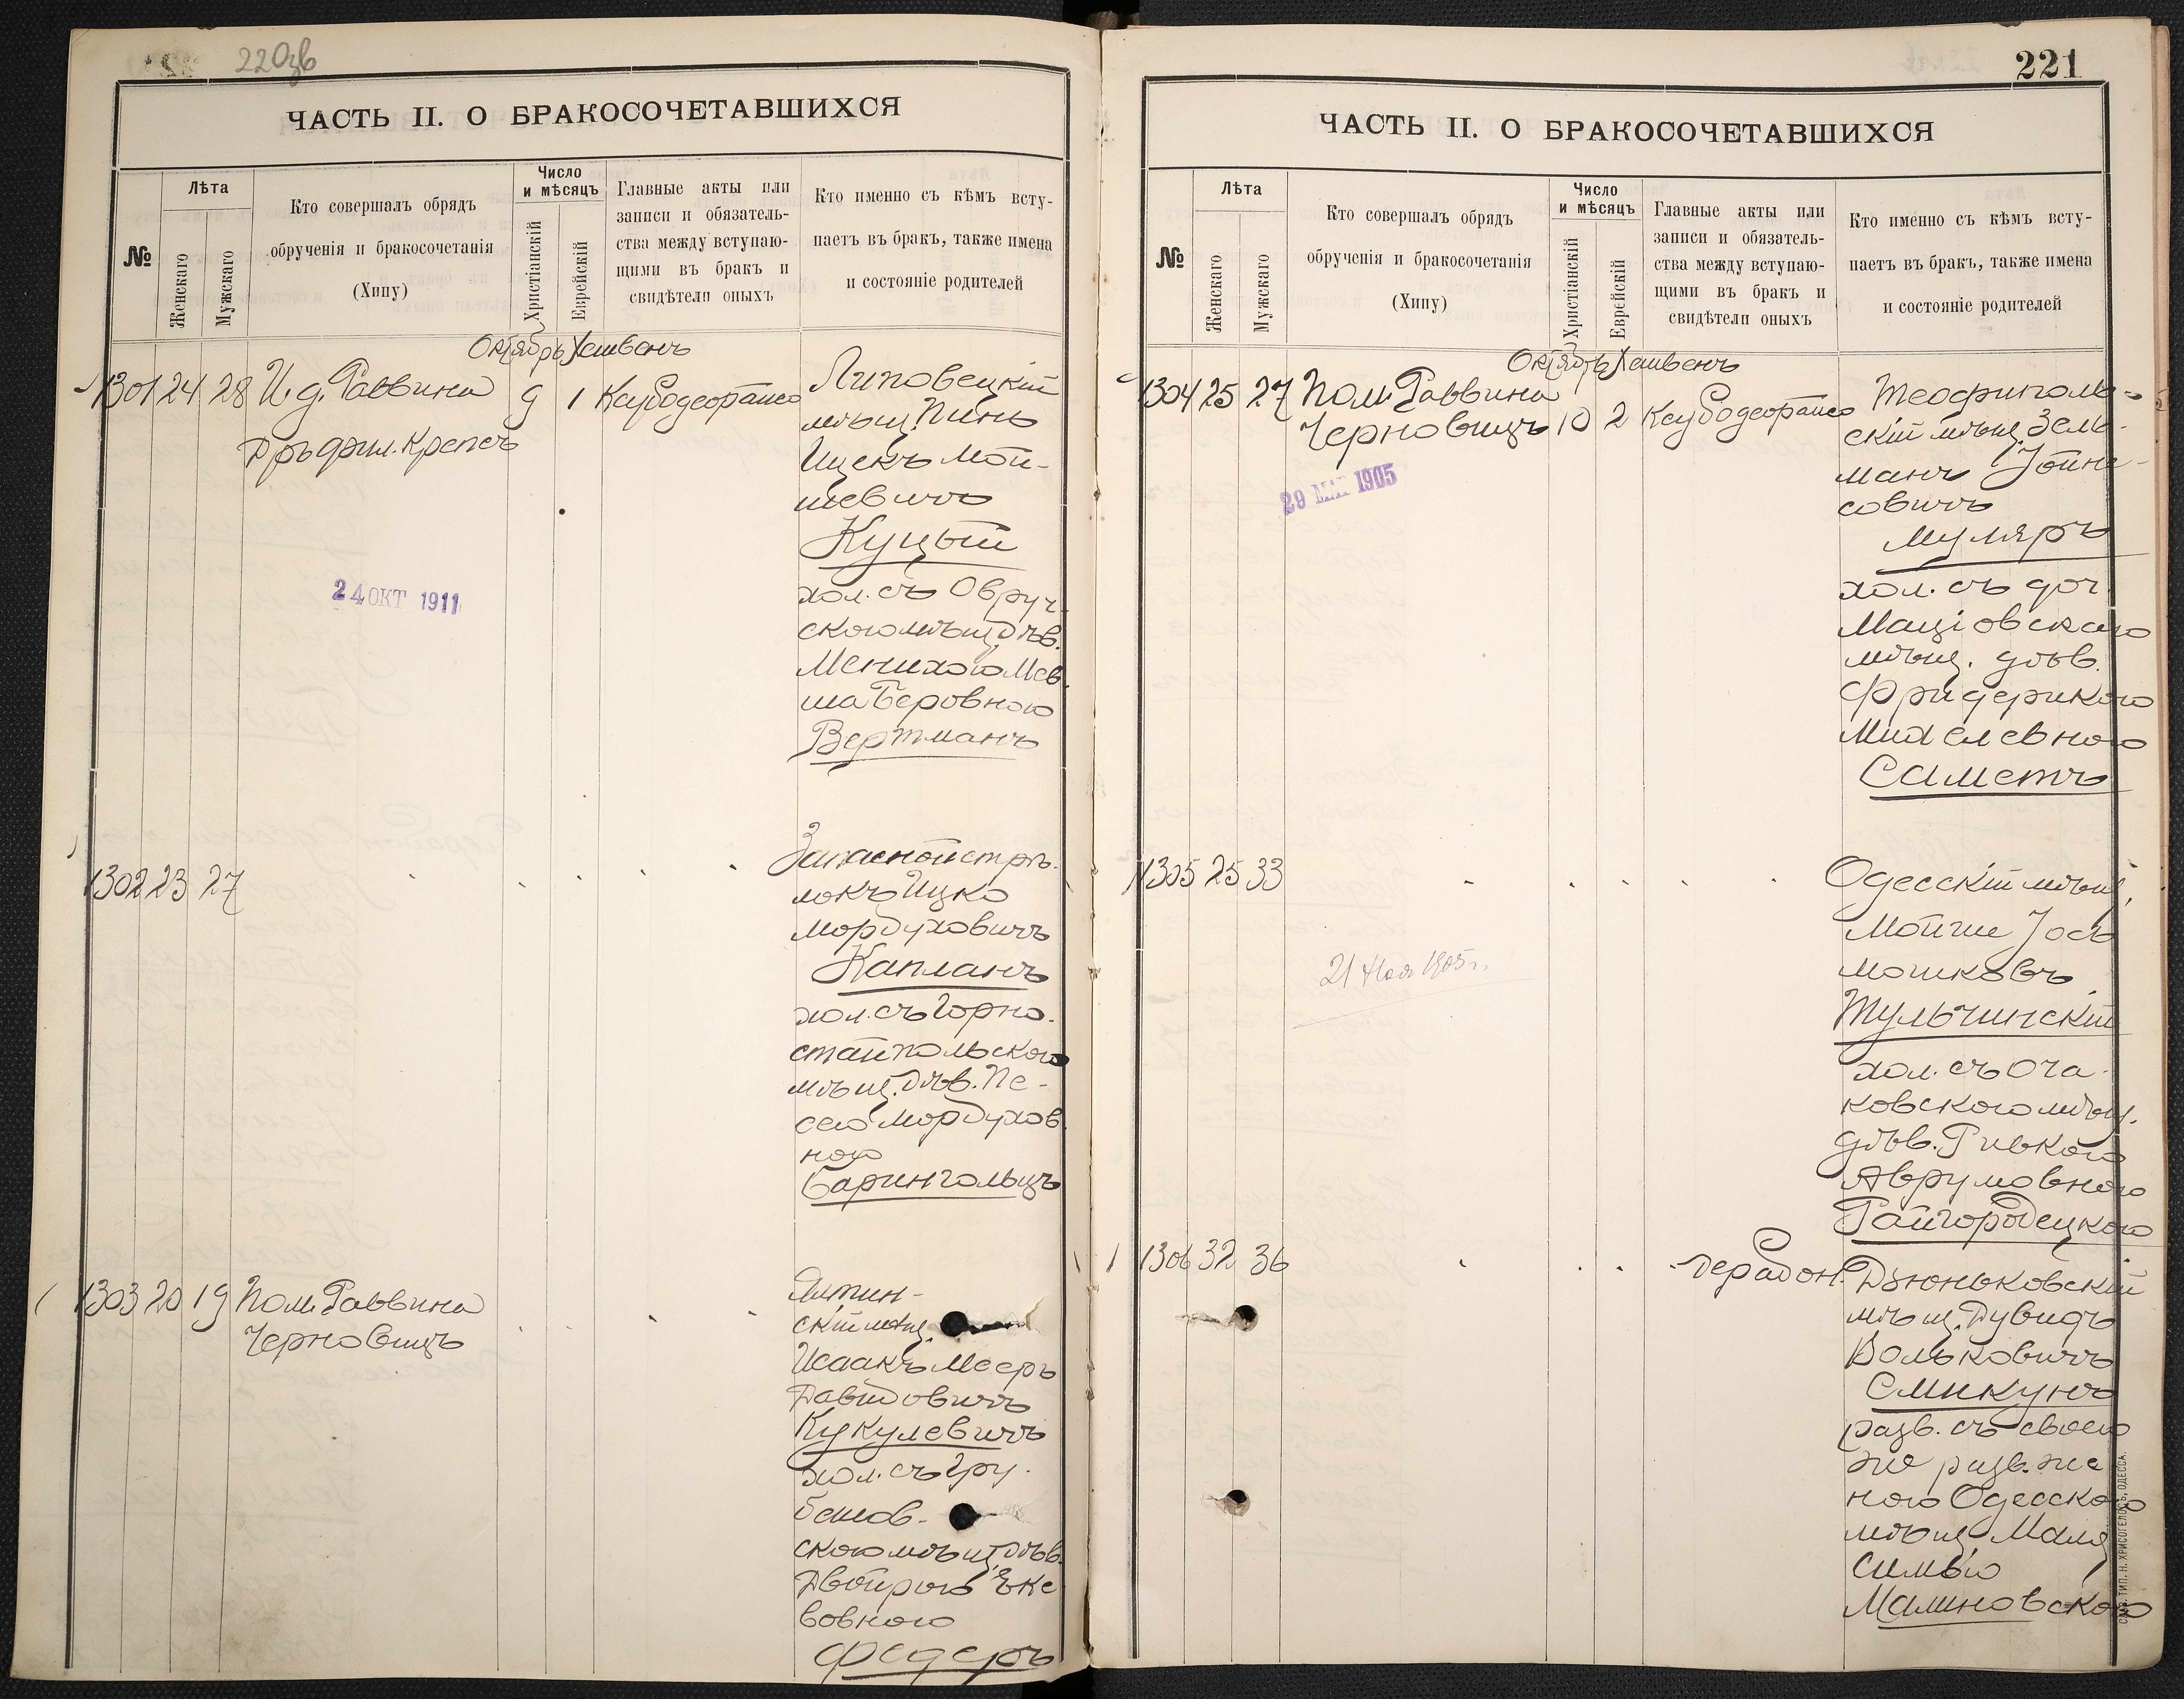 220зв
ЧАСТЬ II. О БРАКОСОЧЕТАВШИХСЯ
№
Лѣта
Женскаго
Мужскаго
Кто совершалъ обрядъ
обрученія и бракосочетанія
(Хипу)
Число
и мѣсяцъ
Христіанскій
Еврейскій
Главные акты или
записи и обязатель-
ства между вступаю-
щими въ бракъ и
свидѣтели оныхъ
Кто именно съ кѣмъ всту-
паетъ въ бракъ, также имена
и состояніе родителей
Октябрь Хешвенъ
1301 24 28 И. д. Раввина 9 1
Д-ръ фил. Крепсъ
Липовецкій
мѣщ. Пинь
Ицекъ Мой-
шевичъ
Куцый
хол. съ Овруч-
скою мѣщ. дѣв.
Менихою Мев-
ша Беровною
Вертманъ
24 ОКТ 1911
1302 23 27
Запасной стрѣ-
локъ Ицко
Мордуховичъ
Капланъ
хол. съ Горно-
стайпольскою
мѣщ. дѣв. Пе-
сею Мордухов-
ною
Барингольцъ
1303 20 19 Пом. Раввина
Черновицъ
Ялтин-
скій мѣщ.
Исаакъ Мееръ
Давидовичъ
Кукулевичъ
хол. съ Гру-
шов-
скою мѣщ. дѣв.
Двойрою Эке-
вовною
Федеръ
221
ЧАСТЬ II. О БРАКОСОЧЕТАВШИХСЯ
№
Лѣта
Женскаго
Мужскаго
Кто совершалъ обрядъ
обрученія и бракосочетанія
(Хипу)
Число
и мѣсяцъ
Христіанскій
Еврейскій
Главные акты или
записи и обязатель-
ства между вступаю-
щими въ бракъ и
свидѣтели оныхъ
Кто именно съ кѣмъ всту-
паетъ въ бракъ, также имена
и состояніе родителей
Октябрь Хешвенъ
1304 25 27 Пом. Раввина
Черновицъ 10 2
29 МАР 1905
Теофиполь-
скій мѣщ. Зель-
манъ Іойне-
совичъ
Муляръ
хол. съ доч.
Маціовскаго
мѣщ. дѣв.
Фридерикою
Михелевною
Саметъ
1305 25 33
21 Ноя 1905 г.
Одесскій мѣщ.
Мойше Іось
Мошковъ
Тульчинскій
хол. съ Оча-
ковскою мѣщ.
дѣв. Ривкою
Аврумовною
Райгородецкою
1306 32 36
Дерабон.
Дзюньковскій
мѣщ. Дувидъ
Вольковичъ
Смикунъ
разв. съ своею
же разв. же-
ною Одесскою
мѣщ. Маля
Симою
Малиновскою
ТИП. Н. ХРИСОГЕЛОСЪ, ОДЕССА.